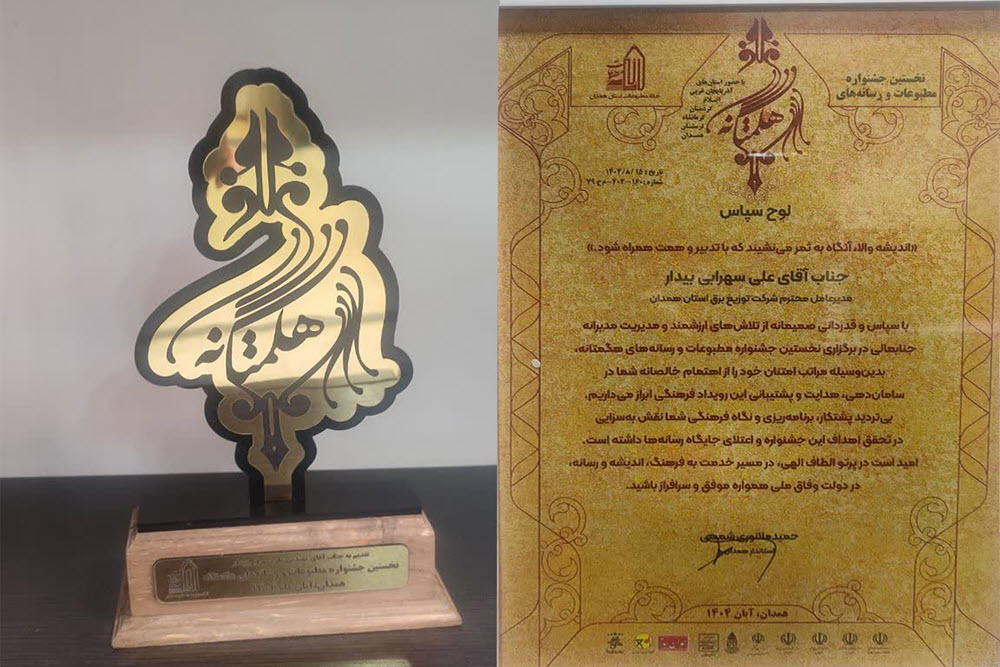 هگمتانه
تقدیم به جناب آقای
نخستین جشنواره مطبوعات و رسانه‌های هگمتانه
همدان، آبان
نخستین جشنواره
مطبوعات و رسانه‌های
هگمتانه
با حضور استان‌های
آذربایجان غربی
ایلام
کردستان
کرمانشاه
لرستان
همدان
خانه مطبوعات استان همدان
تاریخ: ۱۴۰۴/۸/۱۵
لوح سپاس
«اندیشه والا، آنگاه به ثمر می‌نشیند که با تدبیر و همت همراه شود.»
جناب آقای علی سهرابی بیدار
مدیرعامل محترم شرکت توزیع برق استان همدان
با سپاس و قدردانی صمیمانه از تلاش‌های ارزشمند و مدیریت مدبرانه
جنابعالی در برگزاری نخستین جشنواره مطبوعات و رسانه‌های هگمتانه،
بدین‌وسیله مراتب امتنان خود را از اهتمام خالصانه شما در
سامان‌دهی، هدایت و پشتیبانی این رویداد فرهنگی ابراز می‌داریم.
بی‌تردید پشتکار، برنامه‌ریزی و نگاه فرهنگی شما نقش به‌سزایی
در تحقق اهداف این جشنواره و اعتلای جایگاه رسانه‌ها داشته است.
امید است در پرتو الطاف الهی، در مسیر خدمت به فرهنگ، اندیشه و رسانه،
در دولت وفاق ملی همواره موفق و سرافراز باشید.
حمید ملانوری شمسی
استاندار همدان
همدان، آبان ۱۴۰۴